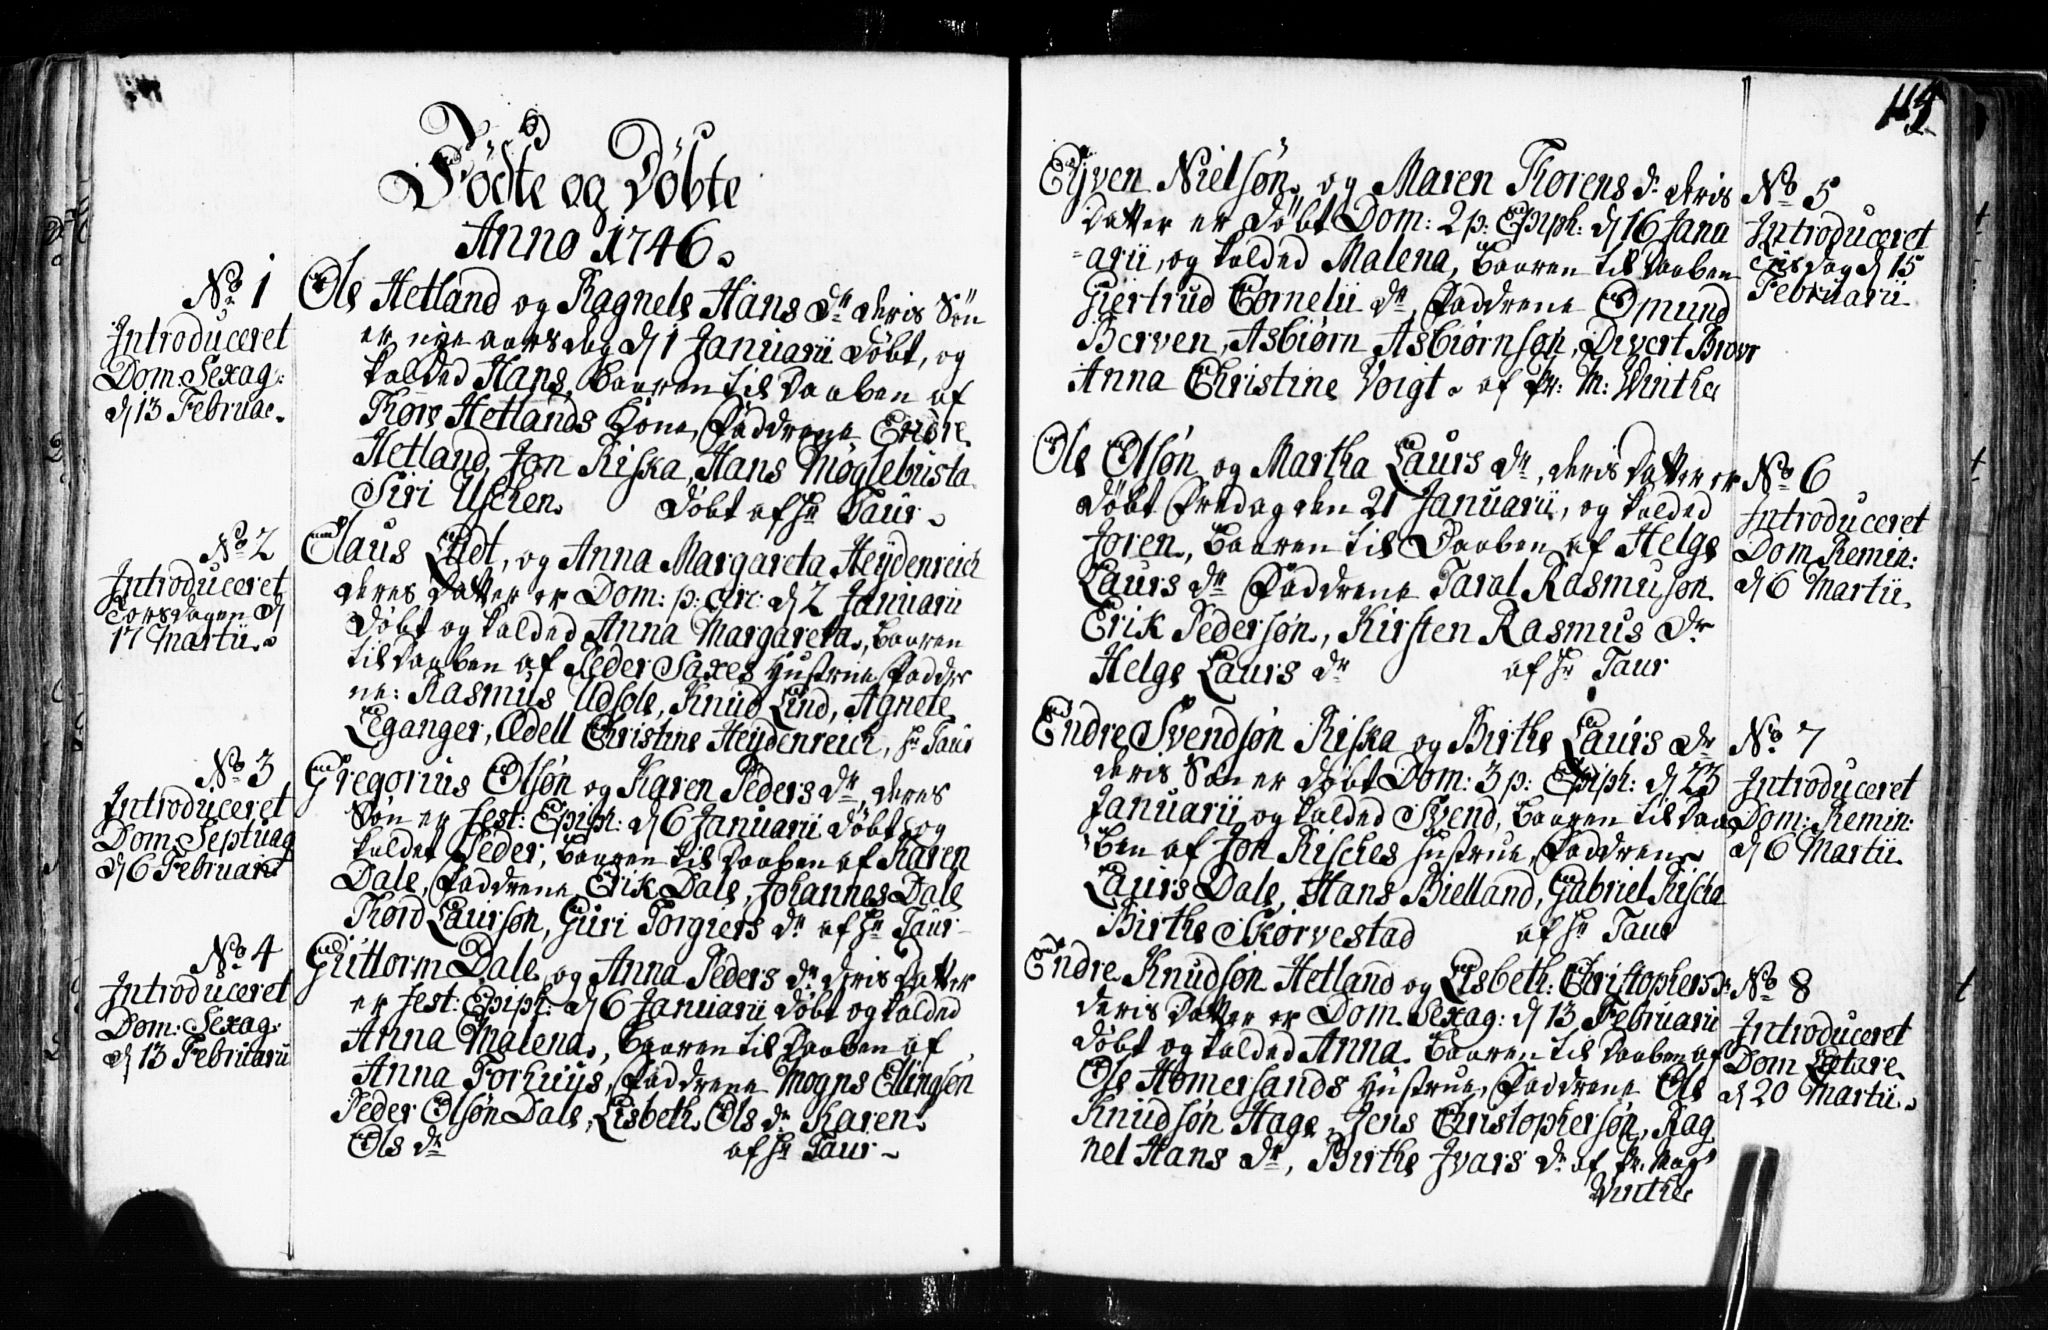 Fødte og Døbte
Anno 1746.
No 1
Introduceret
Dom: Sexag:
d 13 Februae.
Ole Hetland og Ragnele Hans dr deris Sön
er nye aars dag d 1 Januarii döbt, og
kalded Hans, baaren til daaben af
Thore Hetlands Kone, Faddrene Endre
Hetland, Jon Riska, Hans Møglebusta
Siri Uschen. Döbt af Hr Taur.
No 2
Introduceret
Torsdagen d
17 Martii.
Claus Lydt, og Anna Margareta Heydenreich
deres datter er Dom: p: Circ: d 2 Januarii
döbt og kalded Anna Margareta, baaren
til daaben af Peder Saxes Hustrue, Faddre
ne: Rasmus Udsole, Knud Lind, Agnete
Leganger, Ædell Christine Heydenreich, Hr Taur
No 3
Introduceret
Dom: Septuag
d 6 Februarii
Gregorius Olsøn og Karen Peders dr, deres
Søn er Fest: Epiph: d 6 Januarii döbt, og
kaldet Peder, baaren til daaben af Karen
Dale, Faddrene Erik Dale, Johannes Dale
Thord Laursøn, Guri Torgiers dr af Hr Taur
No 4
Introduceret
Dom: Sexag:
d 13 Februarii
Guttorm Dale og Anna Peders dr deris datter
er Fest: Epiph: d 6 Januarii döbt og kalded
Anna Malena, baaren til daaben af
Anna Torhuus, Faddrene Mogns Ellingsøn
Peder Olsøn Dale, Lisbeth Ols dr Karen
Ols dr af Hr Taur
Eyven Nielsøn og Maren Thorens dr deris
datter er döbt Dom: 2 p: Epiph: d 16 Janu
arii, og kalded Malena, baaren til daaben
Giertrud Cornelii dr, Faddrene Omund
Berven, Asbiørn Asbiørnsøn, Divert Brovr
Anna Christine Voigt. af Pr: M: Winther
No 5
Introduceret
Tisdag d 15
Februarii
Ole Olsøn og Martha Laurs dr, deris datter er
döbt Fredag den 21 Januarii, og kalded
Joren, baaren til Daaben af Helge
Laurs dr Faddrene Taral Rasmusøn
Erik Pedersøn, Kirsten Rasmus dr
Helge Laurs dr af Hr Taur
No 6
Introduceret
Dom Remin:
d 6 Martii.
Endre Svendsøn Riska og Birthe Laurs dr
deris Søn er döbt Dom: 3 p: Epiph: d 23
Januarii og kalded Svend, baaren til daa
ben af Jon Risches Hustrue, Faddrene
Laurs Dale, Hans Bielland, Gabriel Rischa
Birthe Skørvestad af Hr Taur
No 7
Introduceret
Dom: Remin:
d 6 Martii.
Endre Knudsøn Hetland og Lisbeth: Christophers dr
deris datter er Dom Sexag: d 13 Februarii
döbt og kalded Anna baaren til daaben af
Ole Homersands Hustrue, Faddrene Ole
Knudsøn Hage, Jens Christophersøn, Rag
nel Hans dr, Birthe Jvars dr af Pr. Mag
Winther
No 8
Introduceret
Dom Lætare
d 20 Martii.